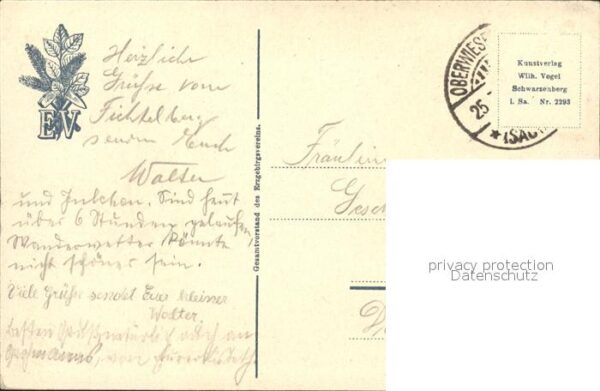 Herzliche
Grüße vom
Fichtelberg
senden Euch
Walter
und Julchen. Sind heut
über 6 Stunden gelaufen,
Wanderwetter könnte
nicht schöner sein.
Viele Grüße sendet Euer kleiner
Walter.
besten
von
E.V.
Gesamtvorstand des Erzgebirgsvereins.
OBERWIESE
25.
*(SAC
Kunstverlag
Wilh. Vogel
Schwarzenberg
i. Sa. Nr. 2293
Fräulein
Gesch
privacy protection
Datenschutz